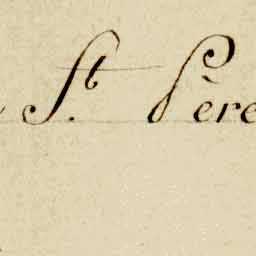 St. Père